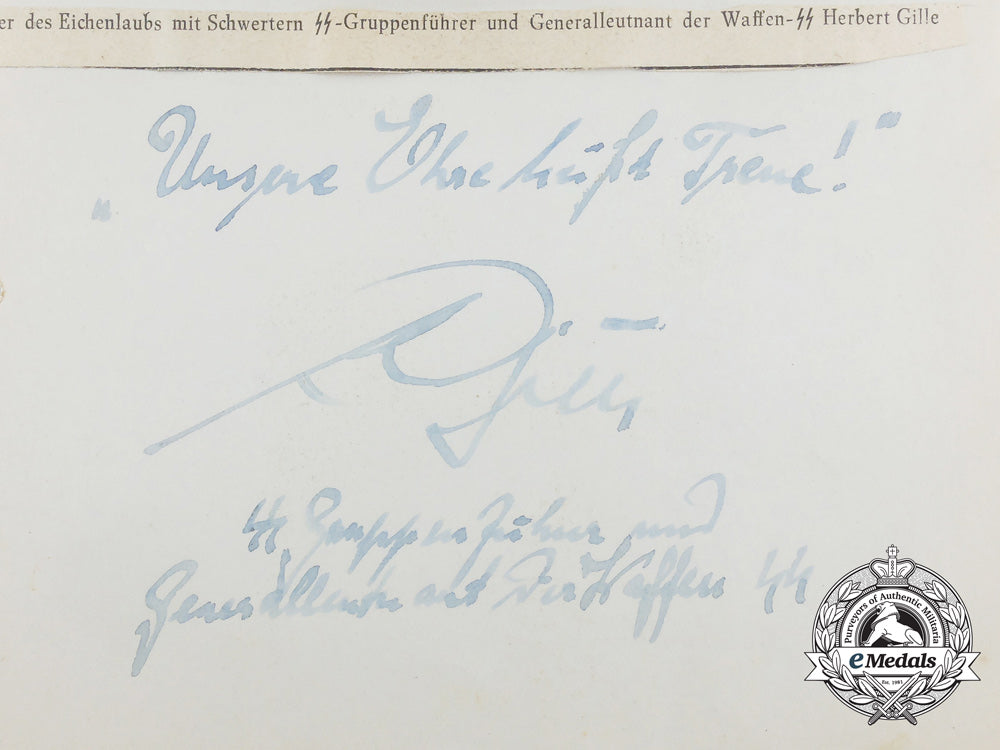 er des Eichenlaubs mit Schwertern ᛋᛋ-Gruppenführer und Generalleutnant der Waffen-ᛋᛋ Herbert Gille
„Unsere Ehre heißt Treue!“
Gille
ᛋᛋ Gruppenführer und
Generalleutnant der Waffen ᛋᛋ
Purveyors of Authentic Militaria
eMedals
Est. 1981